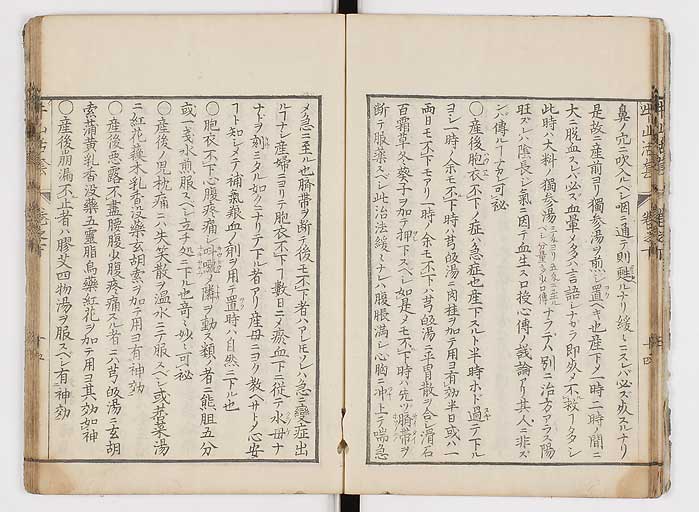 鼻ノ穴ニ吹入ベシ咽ニ通テ則甦ルナリ緩々ニスレバ必ス死スルナリ
是故ニ産前ヨリ獨参湯ヲ煎シ置ベキ也産下メ一時二時ノ間ニ
大ニ脱血スレバ必ズ血暈メ多ハ言語シナカラ即死メ不救丁多シ
此時ハ大料ノ獨参湯ニナフテハ別ニ治方アラズ陽
旺スレバ陰長シ氣ニ因テ血生スロ授心傳ノ議論アリ其人ニ非ズ
ンバ傳ルナカレ可秘
〇産後胞衣不下ノ症ハ急症也産下スルト半時ホド過テ下ル
ヨシ一時ノ余モ不下時ハ芎皈湯ニ肉桂ヲ加テ用ヨ有効半日或ハ一
両日モ不下モアリ一時ノ余モ不下時ハ芎皈湯ニ平胃散ヲ合シ滑石
百霜草冬葵子ヲ加テ押下スベシ如是メモ不下時ハ先ツ臍帯ヲ
断テ服藥スベシ此治法緩々ニナレハ腹脹満シ心胸ニ冲上テ喘急
メ急ニ至ル也臍帯ヲ断テ後モ不下者ハアレ𪜈ソレハ急ニ變症出
ルナシ産婦ニヨリテ胞衣不下丁數日ニメ瘀血下ニ従テ水母ナ
ナドヲ刻ミタル如クニナリテ下ル者アリ産母ニヨク教ヘサトメ心安
丁ト知シメテ補氣瘀血ノ剤ヲ用テ置時ハ自然ニ下ル也
〇胞衣不下心腹疼痛シ叫嗽ノ隣ヲ動ス類ノ者ニ熊胆五分
或一戔水煎服スベシ立チ処ニ下ル也奇々妙々可秘
〇産後ノ児枕痛ニハ失笑散ヲ温水ニテ服スベシ或莪葉湯
ニ紅花蘓木乳香没藥玄胡索ヲ加テ用ヨ有神効
〇産後悪露不盡腰腹少腹疼痛スル者ニ芎皈湯ニ玄胡
索蒲黄乳香没藥五靈脂烏藥紅花ヲ加テ用ヨ其効如神
〇産後崩漏不止者ハ膠艾四物湯ヲ服スベシ有神効